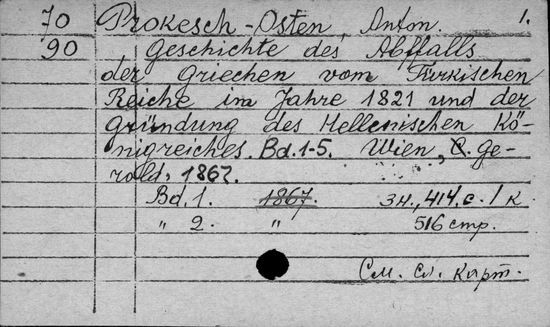 70 Prokesch-Osten, Anton. 1.
90 Geschichte des Abffalls
der Griechen vom Türkischen
Reiche im Jahre 1821 und der
Gründung des Hellenischen Kö-
nigreiches. Bd. 1-5. Wien, C. Ge-
rold, 1867.
Bd. 1. 1867. 3н., 414 с. 1 к
" 2. " 516 стр.
См. сл. карт.